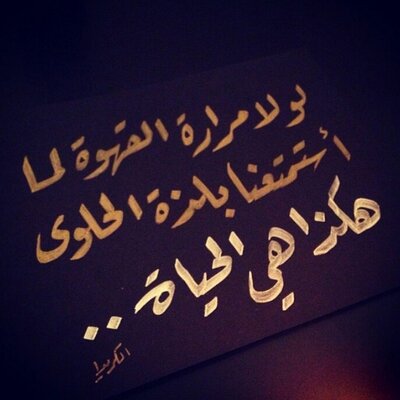 لولا مرارة القهوة لما
أستمتعنا بلذة الحلوى
هكذا هي الحياة ..